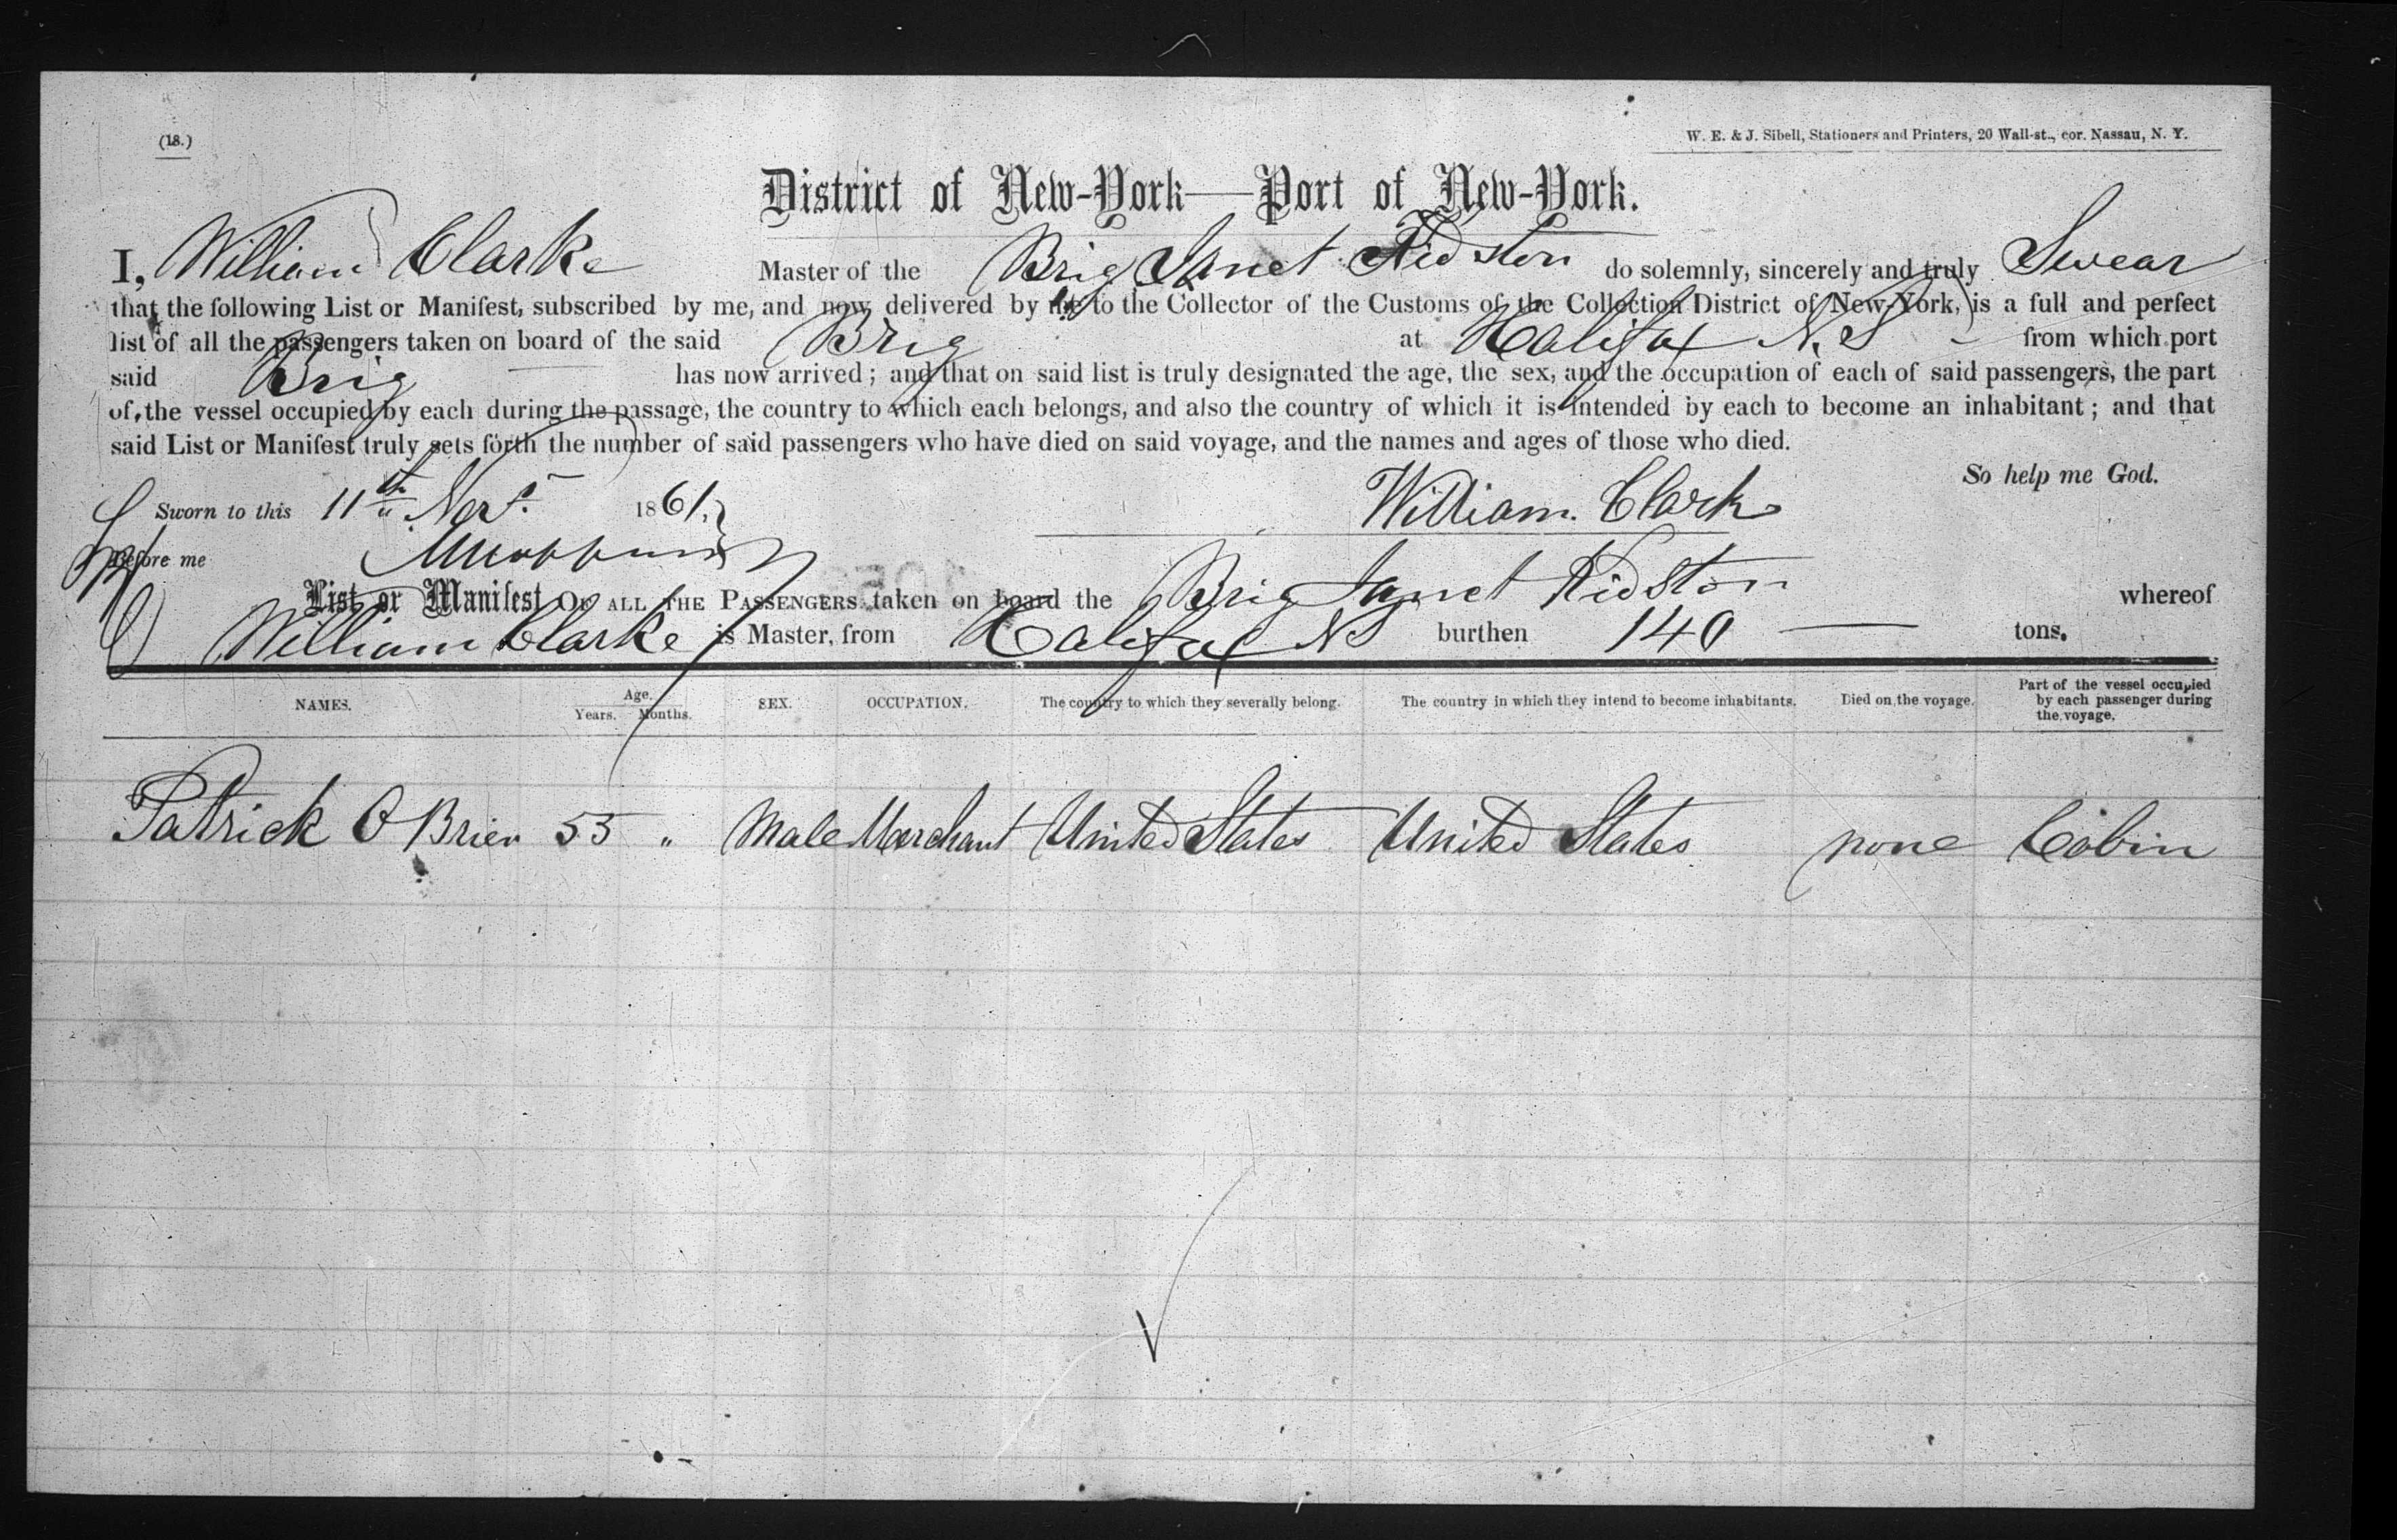 (18.)
W. E. & J. Sibell, Stationers and Printers, 20 Wall-st., cor. Nassau, N. Y.
District of New-York—Port of New-York.
I, William Clarke Master of the Brig Janet Kidston do solemnly, sincerely and truly Swear
that the following List or Manifest, subscribed by me, and now delivered by me to the Collector of the Customs of the Collection District of New-York, is a full and perfect
list of all the passengers taken on board of the said Brig at Halifax N.S from which port
said Brig has now arrived; and that on said list is truly designated the age, the sex, and the occupation of each of said passengers, the part
of the vessel occupied by each during the passage, the country to which each belongs, and also the country of which it is intended by each to become an inhabitant; and that
said List or Manifest truly sets forth the number of said passengers who have died on said voyage, and the names and ages of those who died.
So help me God.
Sworn to this 11th Nov. 1861. William Clark
Before me
List or Manifest OF ALL THE PASSENGERS taken on board the Brig Janet Kidston whereof
William Clarke is Master, from Halifax NS burthen 140 tons.
NAMES. Age. Years. Months. SEX. OCCUPATION. The country to which they severally belong. The country in which they intend to become inhabitants. Died on the voyage. Part of the vessel occupied by each passenger during the voyage.
Patrick O Brien 55 " Male Merchant United States United States none Cabin